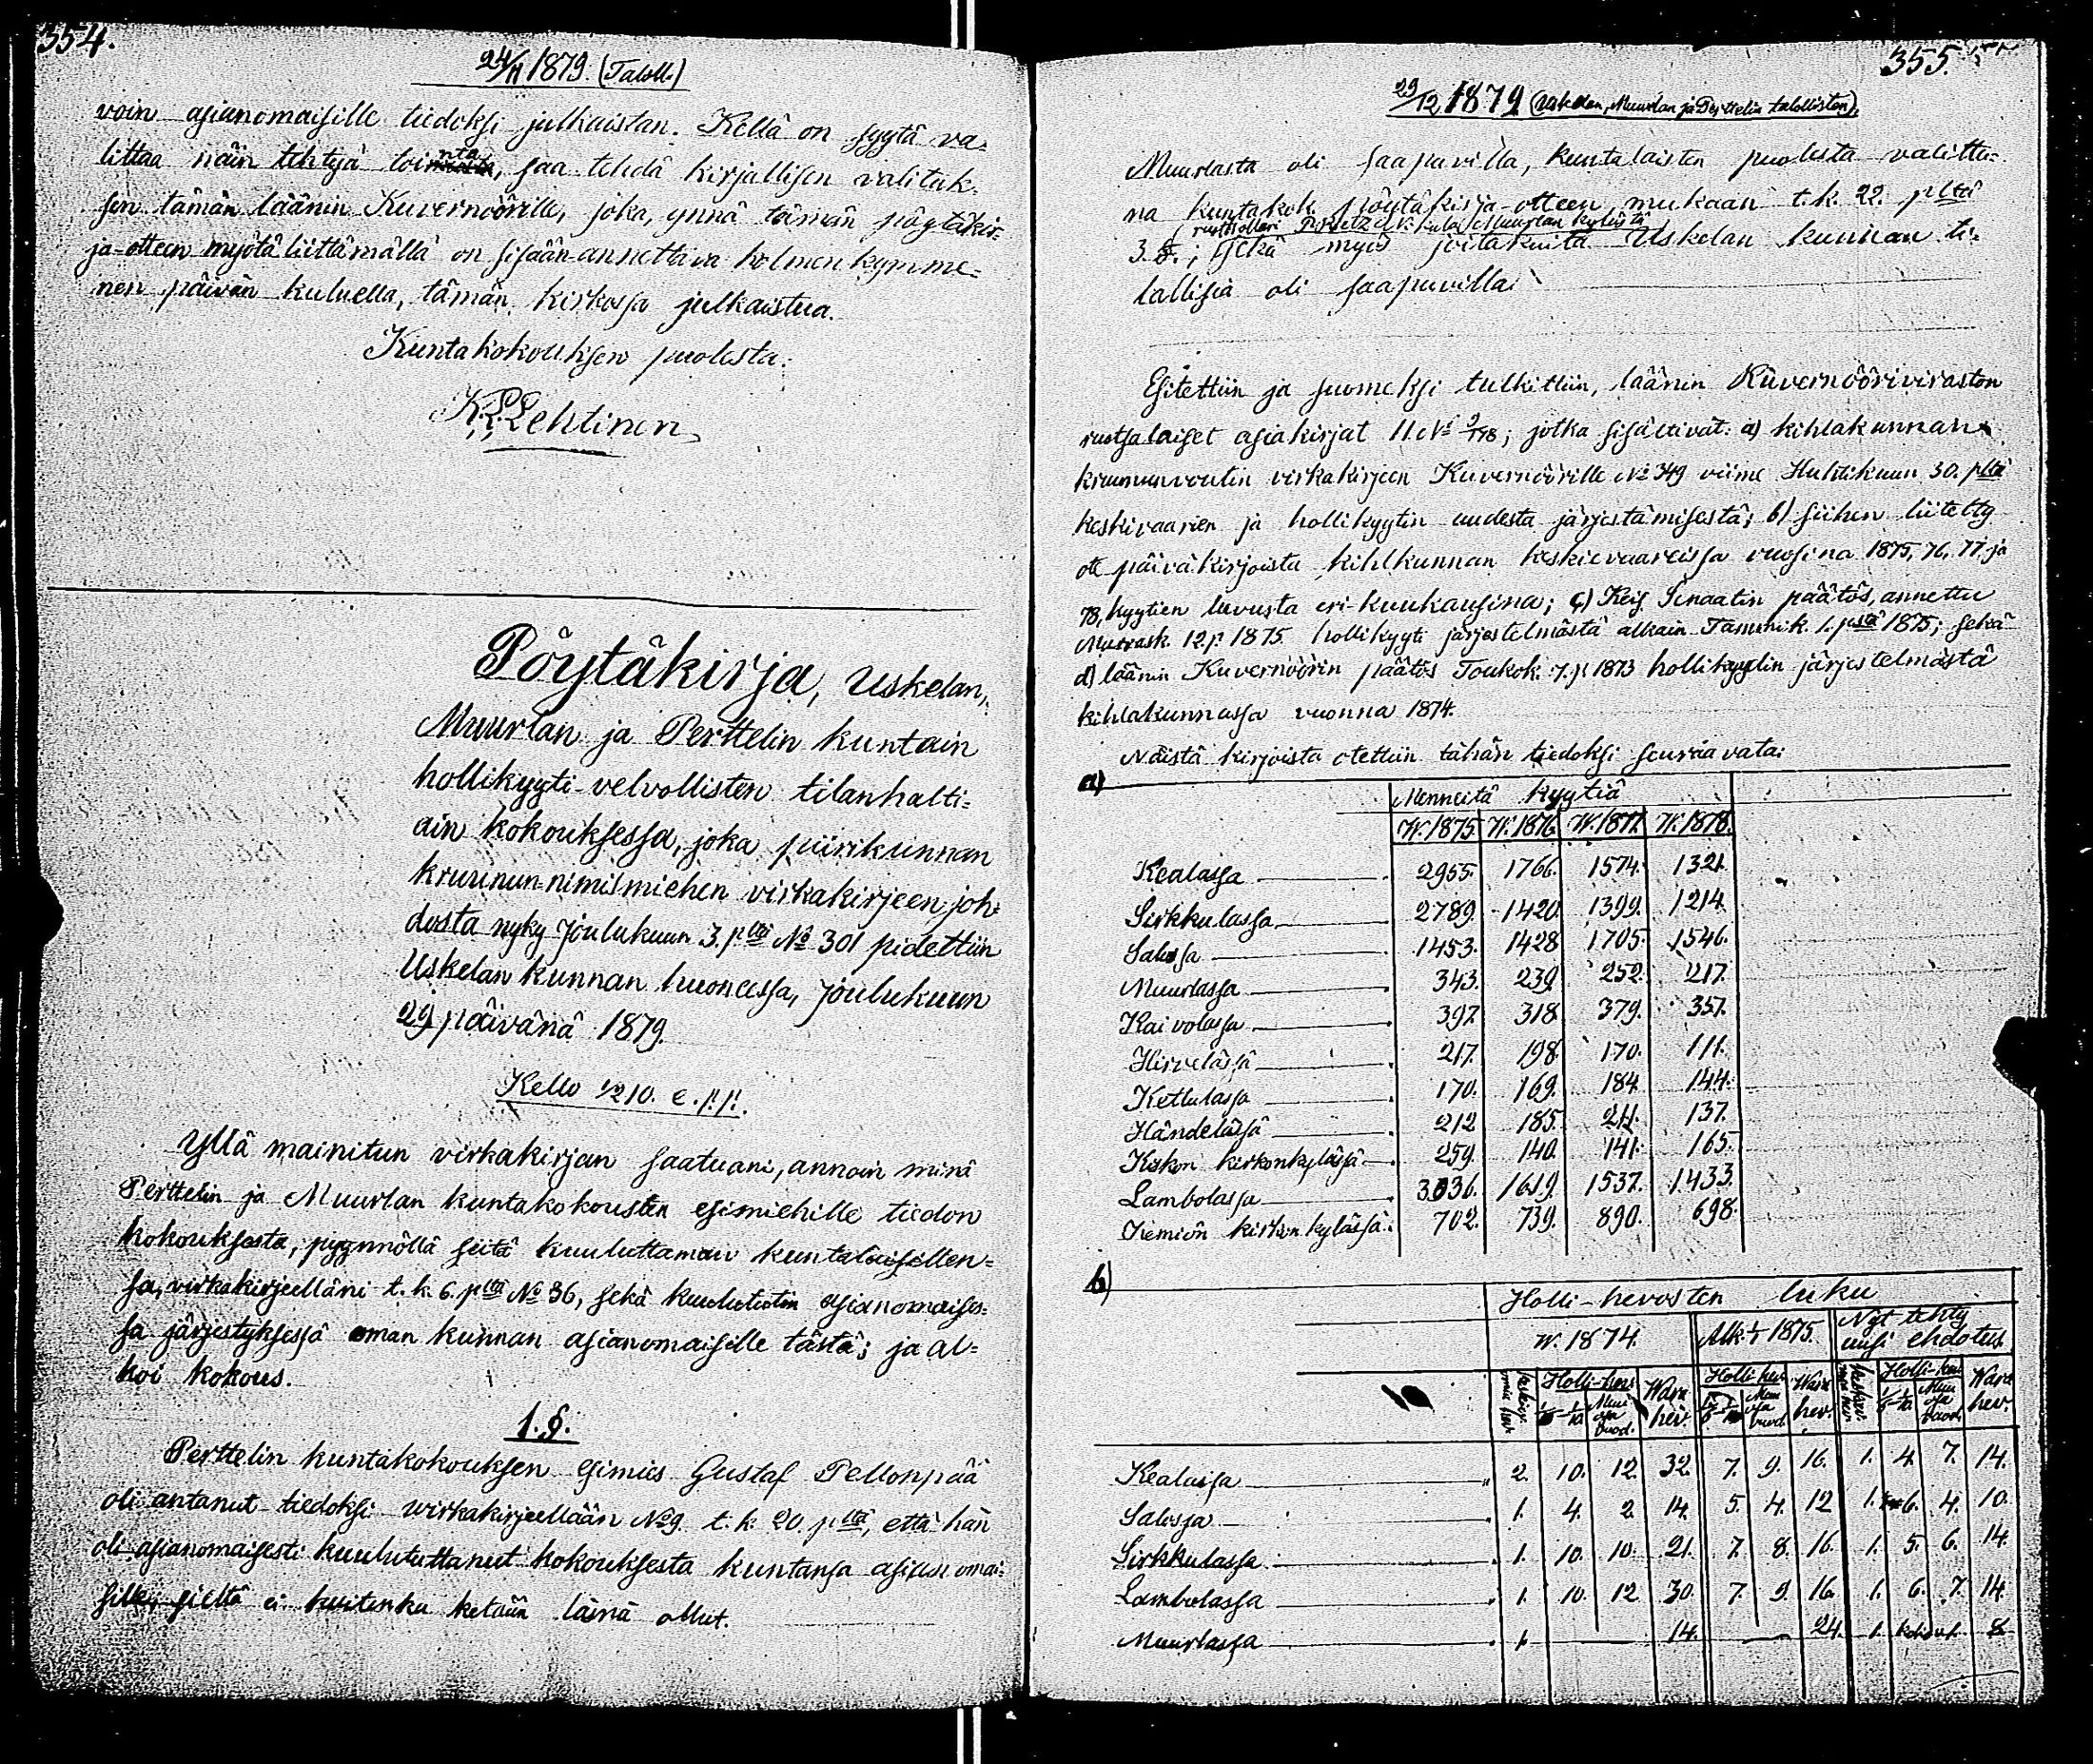 354.
24/11 1879. (Taloll.)
voin asianomaisille tiedoksi julkaistan. Kellä on syytä va-
littaa näin tehtyjä toiminta, saa tehdä kirjallisen valituk-
sen tämän läänin Kuvernöörille, joka, ynnä tämän pöytäkir-
ja-otteen myötä liittämällä on sisään-annettava kolmenkymme-
nen päivän kuluella, tämän kirkossa julkaistua.
Kuntakokouksen puolesta:
K. P. Lehtinen
Pöytäkirja, Uskelan,
Muurlan ja Perttelin kuntain
hollikyyti-velvollisten tilanhalti-
ain kokouksessa, joka piirikunnan
kruunun-nimismiehen virkakirjeen joh-
dosta nyky Joulukuun 3. p:ltä No 301 pidettiin
Uskelan kunnan huoneessa, Joulukuun
29 päivänä 1879.
Kello 1/2 10. e. p. p.
Yllä mainitun virkakirjan saatuani, annoin minä
Perttelin ja Muurlan kuntakokousten esimiehille tiedon
kokouksesta, pyynnöllä seitä kuuluttamaan kuntalaisillen-
sa, virkakirjeelläni t. k. 6. p:ltä No 36, sekä kuulutiotin asianomaises-
sa järjestyksessä oman kunnan asianomaisille tästä; ja al-
koi kokous.
1. §.
Perttelin kuntakokouksen esimies Gustaf Pellonpää
oli antanut tiedoksi wirkakirjeellään No 9. t. k. 20. p:ltä, että hän
oli asianomaisesti kuulututtanut kokouksesta kuntansa asianomai-
sille, sieltä ei kuitenka ketään läsnä ollut.
355.
29/12 1879 (Uskelan, Muurlan ja Perttelin talollisten).
Muurlasta oli saapuvilla, kuntalaisten puolesta valittu-
na kuntakok. pöytäkirja-otteen mukaan t. k. 22. p:ltä
rusthollari
Muurlan kylästä
3. §.; sekä myös joitakuita Uskelan kunnan ti-
lallisia oli saapuvilla.
Esitettiin ja suomeksi tulkittiin, läänin Kuvernöörinviraston
ruotsalaiset asiakirjat II. No 9/178; jotka sisältivät: a) kihlakunnan
kruununvoutin virkakirjeen Kuvernöörille No 349 viime Huhtikuun 30. p:ltä
keskivaarien ja hollikyytin uudesta järjestämisestä; b) siihen liitetty
ote päiväkirjoista kihlkunnan keskievaareissa vuosina 1875, 76, 77 ja
78, kyytien luvusta eri-kuukausina; c) Keis. Senaatin päätös, annettu
Marrask. 12 p. 1875 hollikyyti järjestelmästä alkain Tammik. 1. p:stä 1875; sekä
d) läänin Kuvernöörin päätös Toukok. 7. p. 1873 hollikyytin järjestelmästä
kihlakunnassa vuonna 1874.
Näistä kirjoista otettiin tähän tiedoksi seuraavata:
a)
Menneitä kyytiä
W. 1875. W. 1876. W. 1877. W. 1878.
Kealassa 2955. 1766. 1574. 1321.
Sirkkulassa 2789. 1420. 1399. 1214.
Salossa 1453. 1428 1705. 1546.
Muurlassa 343. 239. 252. 217.
Kaivolassa 397. 318. 379. 357.
Hirvelässä 217. 198. 170. 111.
Kettulassa 170. 169. 184. 144.
Händelässä 212 185. 211. 137.
Kiskon kirkonkylässä 259. 140. 141. 165.
Lambolassa 3036. 1619. 1537. 1433.
Kiemiön kirkonkylässä 702. 739. 890. 698.
b)
Holli-hevosten luku
W. 1874. Alk. 1/1 1875. Nyt tehty
uusi ehdotus.
Holli-hev. Wara hev. Holli hev. Wara hev. Holli-hev. Wara hev.
Kealassa 2. 10. 12. 32. 7. 9. 16. 1. 4. 7. 14.
Salossa 1. 4. 2. 14. 5. 4. 12 1. 6. 4. 10.
Sirkkulassa 1. 10. 10. 21. 7. 8. 16. 1. 5. 6. 14.
Lambolassa 1. 10. 12 30. 7. 9. 16. 1. 6. 7. 14.
Muurlassa 1. 14. 24. 1. 8